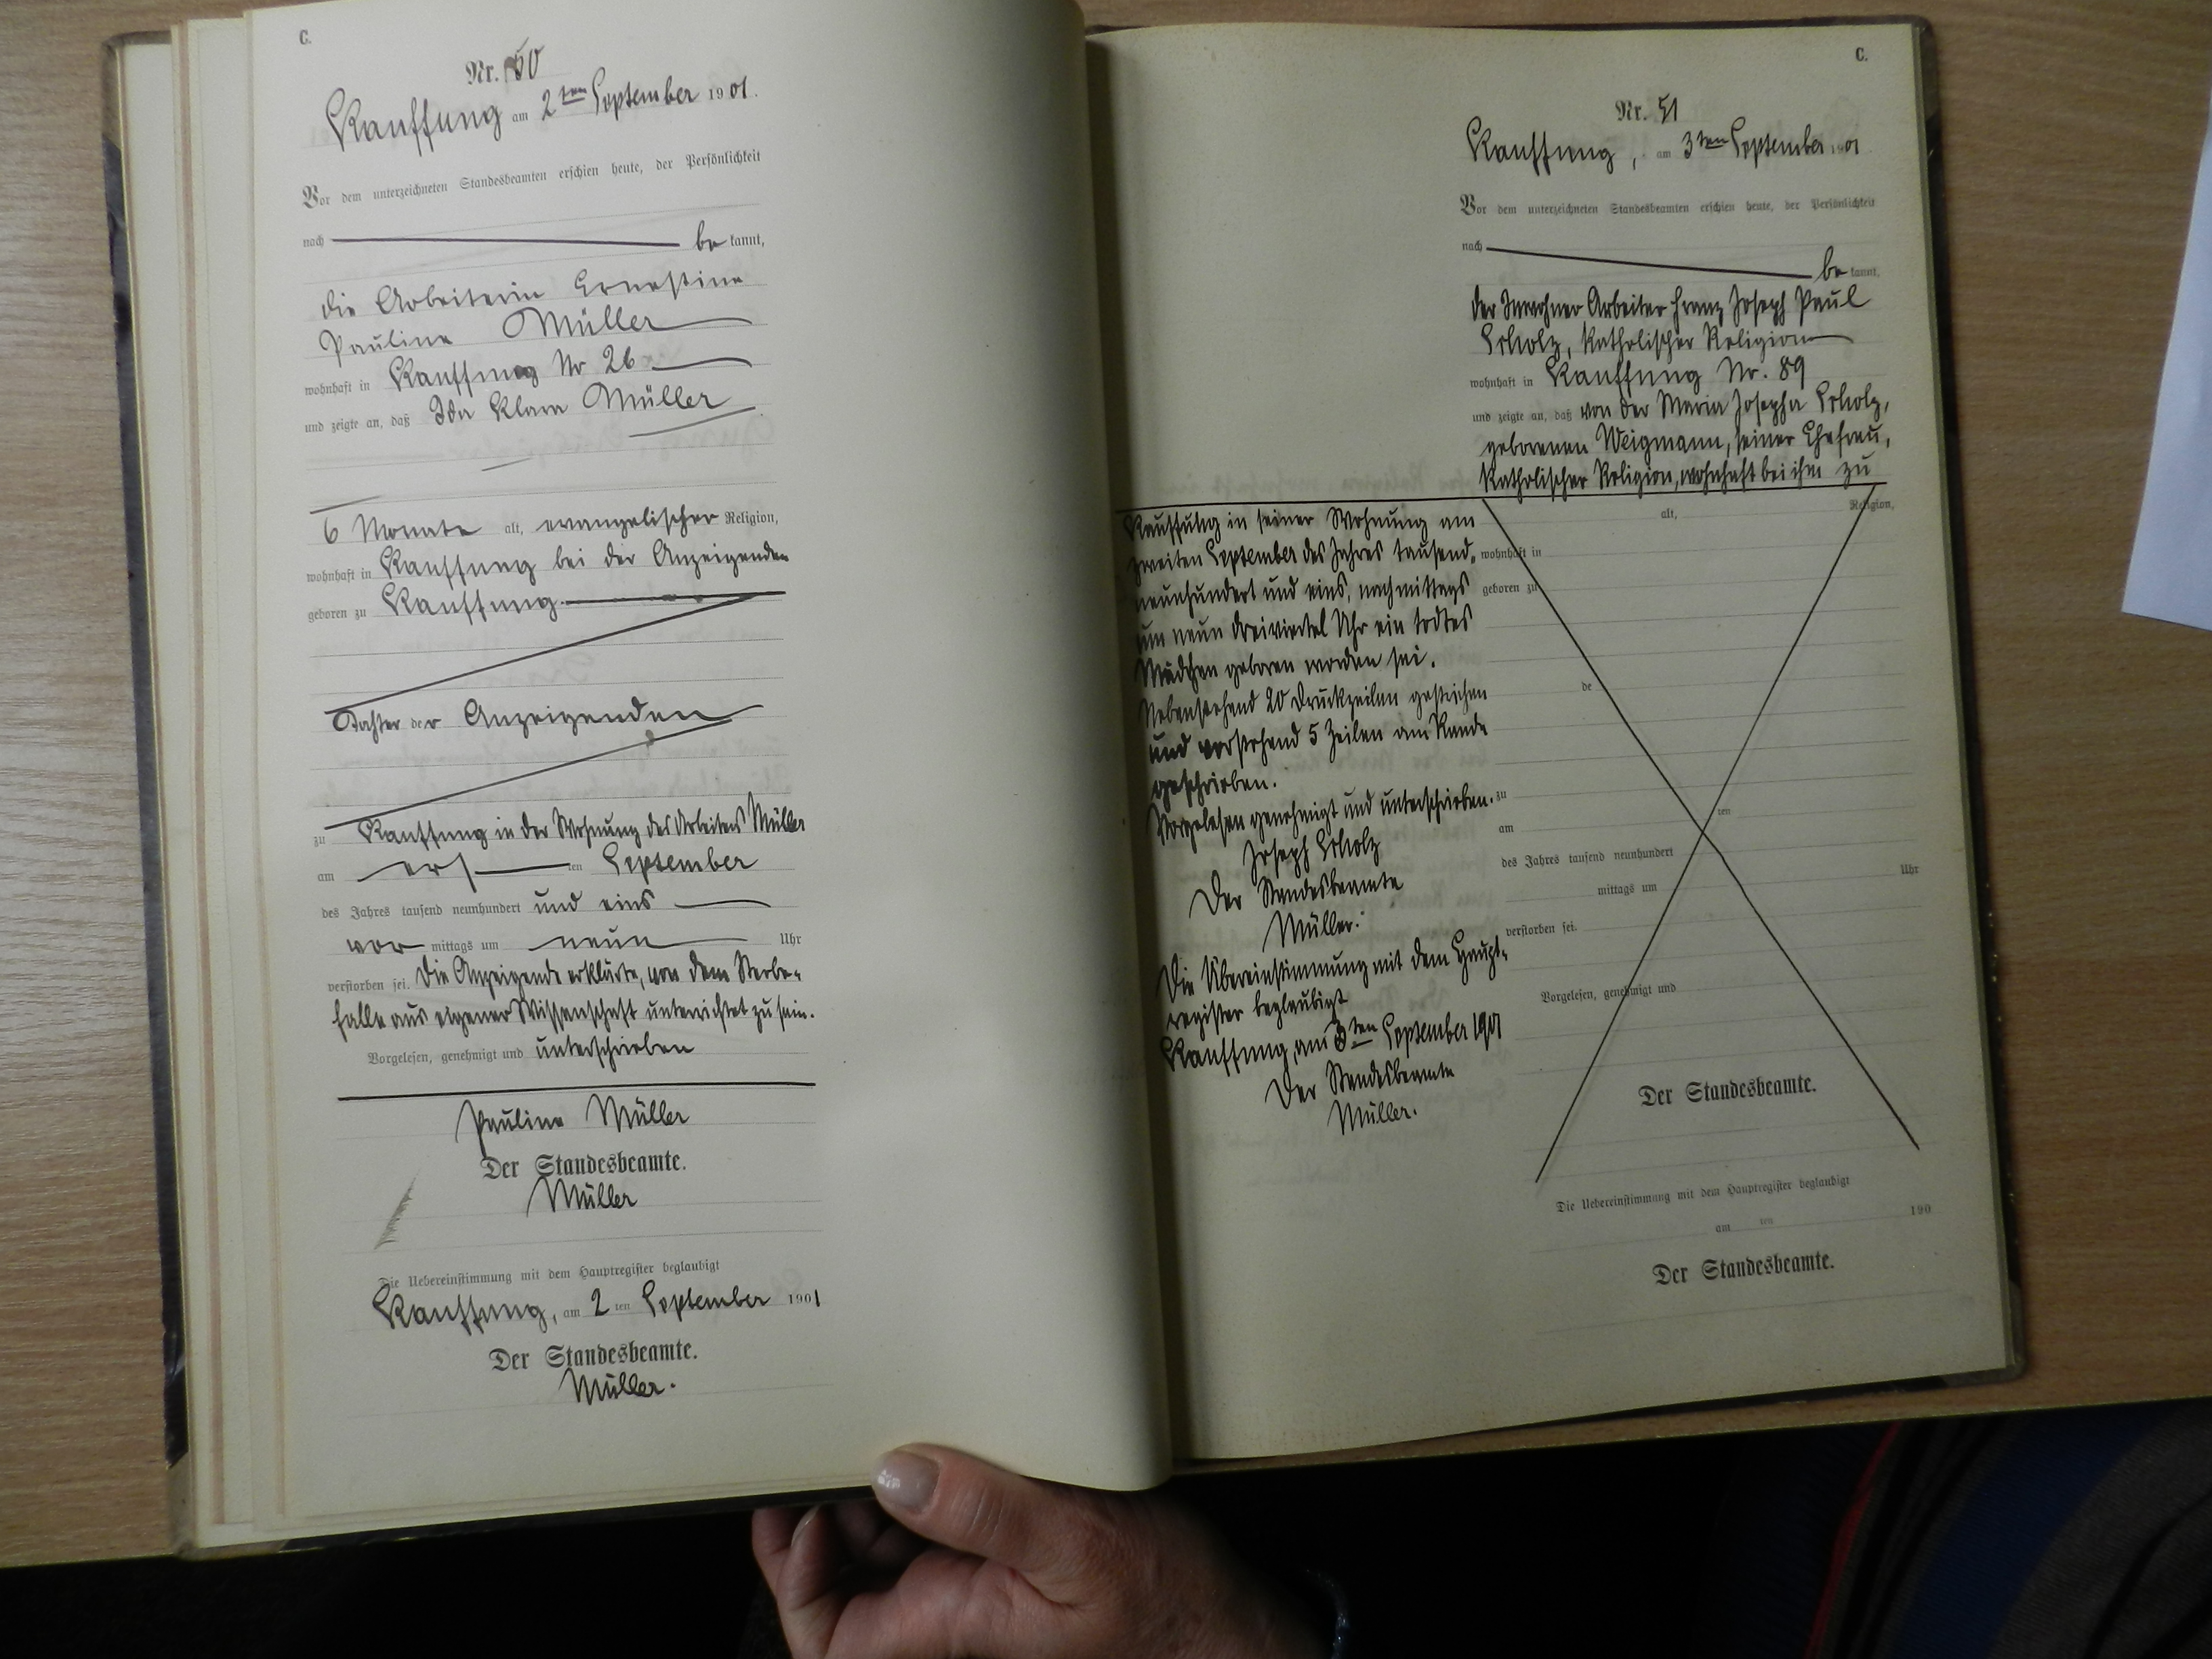 C.
Nr. 50
Kauffung am 2ten September 1901.
Vor dem unterzeichneten Standesbeamten erschien heute, der Persönlichkeit
nach be kannt,
die Arbeiterin Ernestine
Pauline Müller
wohnhaft in Kauffung Nr 26
und zeigte an, daß Ida Klara Müller
6 Monate alt, evangelischer Religion,
wohnhaft in Kauffung bei der Anzeigenden
geboren zu Kauffung.
Tochter der Anzeigenden
zu Kauffung in der Wohnung des Arbeiters Müller
am ersten September
des Jahres tausend neunhundert und eins
vor mittags um neun Uhr
verstorben sei. Die Anzeigende erklärte, von dem Sterbe-
falle aus eigener Wissenschaft unterrichtet zu sein.
Vorgelesen, genehmigt und unterschrieben
Pauline Müller
Der Standesbeamte.
Müller
Die Uebereinstimmung mit dem Hauptregister beglaubigt
Kauffung, am 2 ten September 1901
Der Standesbeamte.
Müller.
C.
Nr. 51
Kauffung, am 3ten September 1901
Vor dem unterzeichneten Standesbeamten erschien heute, der Persönlichkeit
nach be kannt,
der Inwohner Arbeiter Franz Joseph Paul
Scholz, katholischer Religion
wohnhaft in Kauffung Nr. 89
und zeigte an, daß von der Maria Josepha Scholz,
geborenen Weigmann, seiner Ehefrau,
katholischer Religion, wohnhaft bei ihm zu
Kauffung in seiner Wohnung am
zweiten September des Jahres tausend
neunhundert und eins, nachmittags
um neun dreiviertel Uhr ein todtes
Mädchen geboren worden sei.
Nebenstehend 20 Druckzeilen gestrichen
und vorstehend 5 Zeilen am Rande
geschrieben.
Vorgelesen genehmigt und unterschrieben.
Joseph Scholz
Der Standesbeamte
Müller.
Die Übereinstimmung mit dem Haupt-
register beglaubigt
Kauffung, am 3ten September 1901
Der Standesbeamte
Müller.
alt, Religion,
wohnhaft in
geboren zu
de
zu
am ten
des Jahres tausend neunhundert
mittags um Uhr
verstorben sei.
Vorgelesen, genehmigt und
Der Standesbeamte.
Die Uebereinstimmung mit dem Hauptregister beglaubigt
am ten 190
Der Standesbeamte.